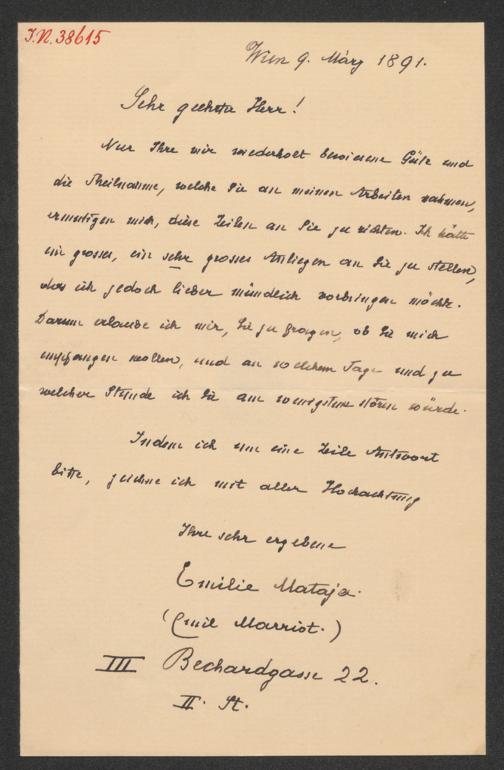 I.N. 38615
Wien 9. März 1891.
Sehr geehrter Herr!
Nur Ihre mir wiederholt bewiesene Güte und
die Theilnahme, welche Sie an meinen Arbeiten nahmen,
ermutigen mich, diese Zeilen an Sie zu richten. Ich hätte
ein grosses, ein sehr grosses Anliegen an Sie zu stellen,
das ich jedoch lieber mündlich vorbringen möchte.
Darum erlaube ich mir, Sie zu fragen, ob Sie mich
empfangen wollen, und an welchem Tage und zu
welcher Stunde ich Sie am wenigsten stören würde.
Indem ich um eine Zeile Antwort
bitte, zeichne ich mit aller Hochachtung
Ihre sehr ergebene
Emilie Mataja.
(Emil Marriot.)
III Bechardgasse 22.
II. St.